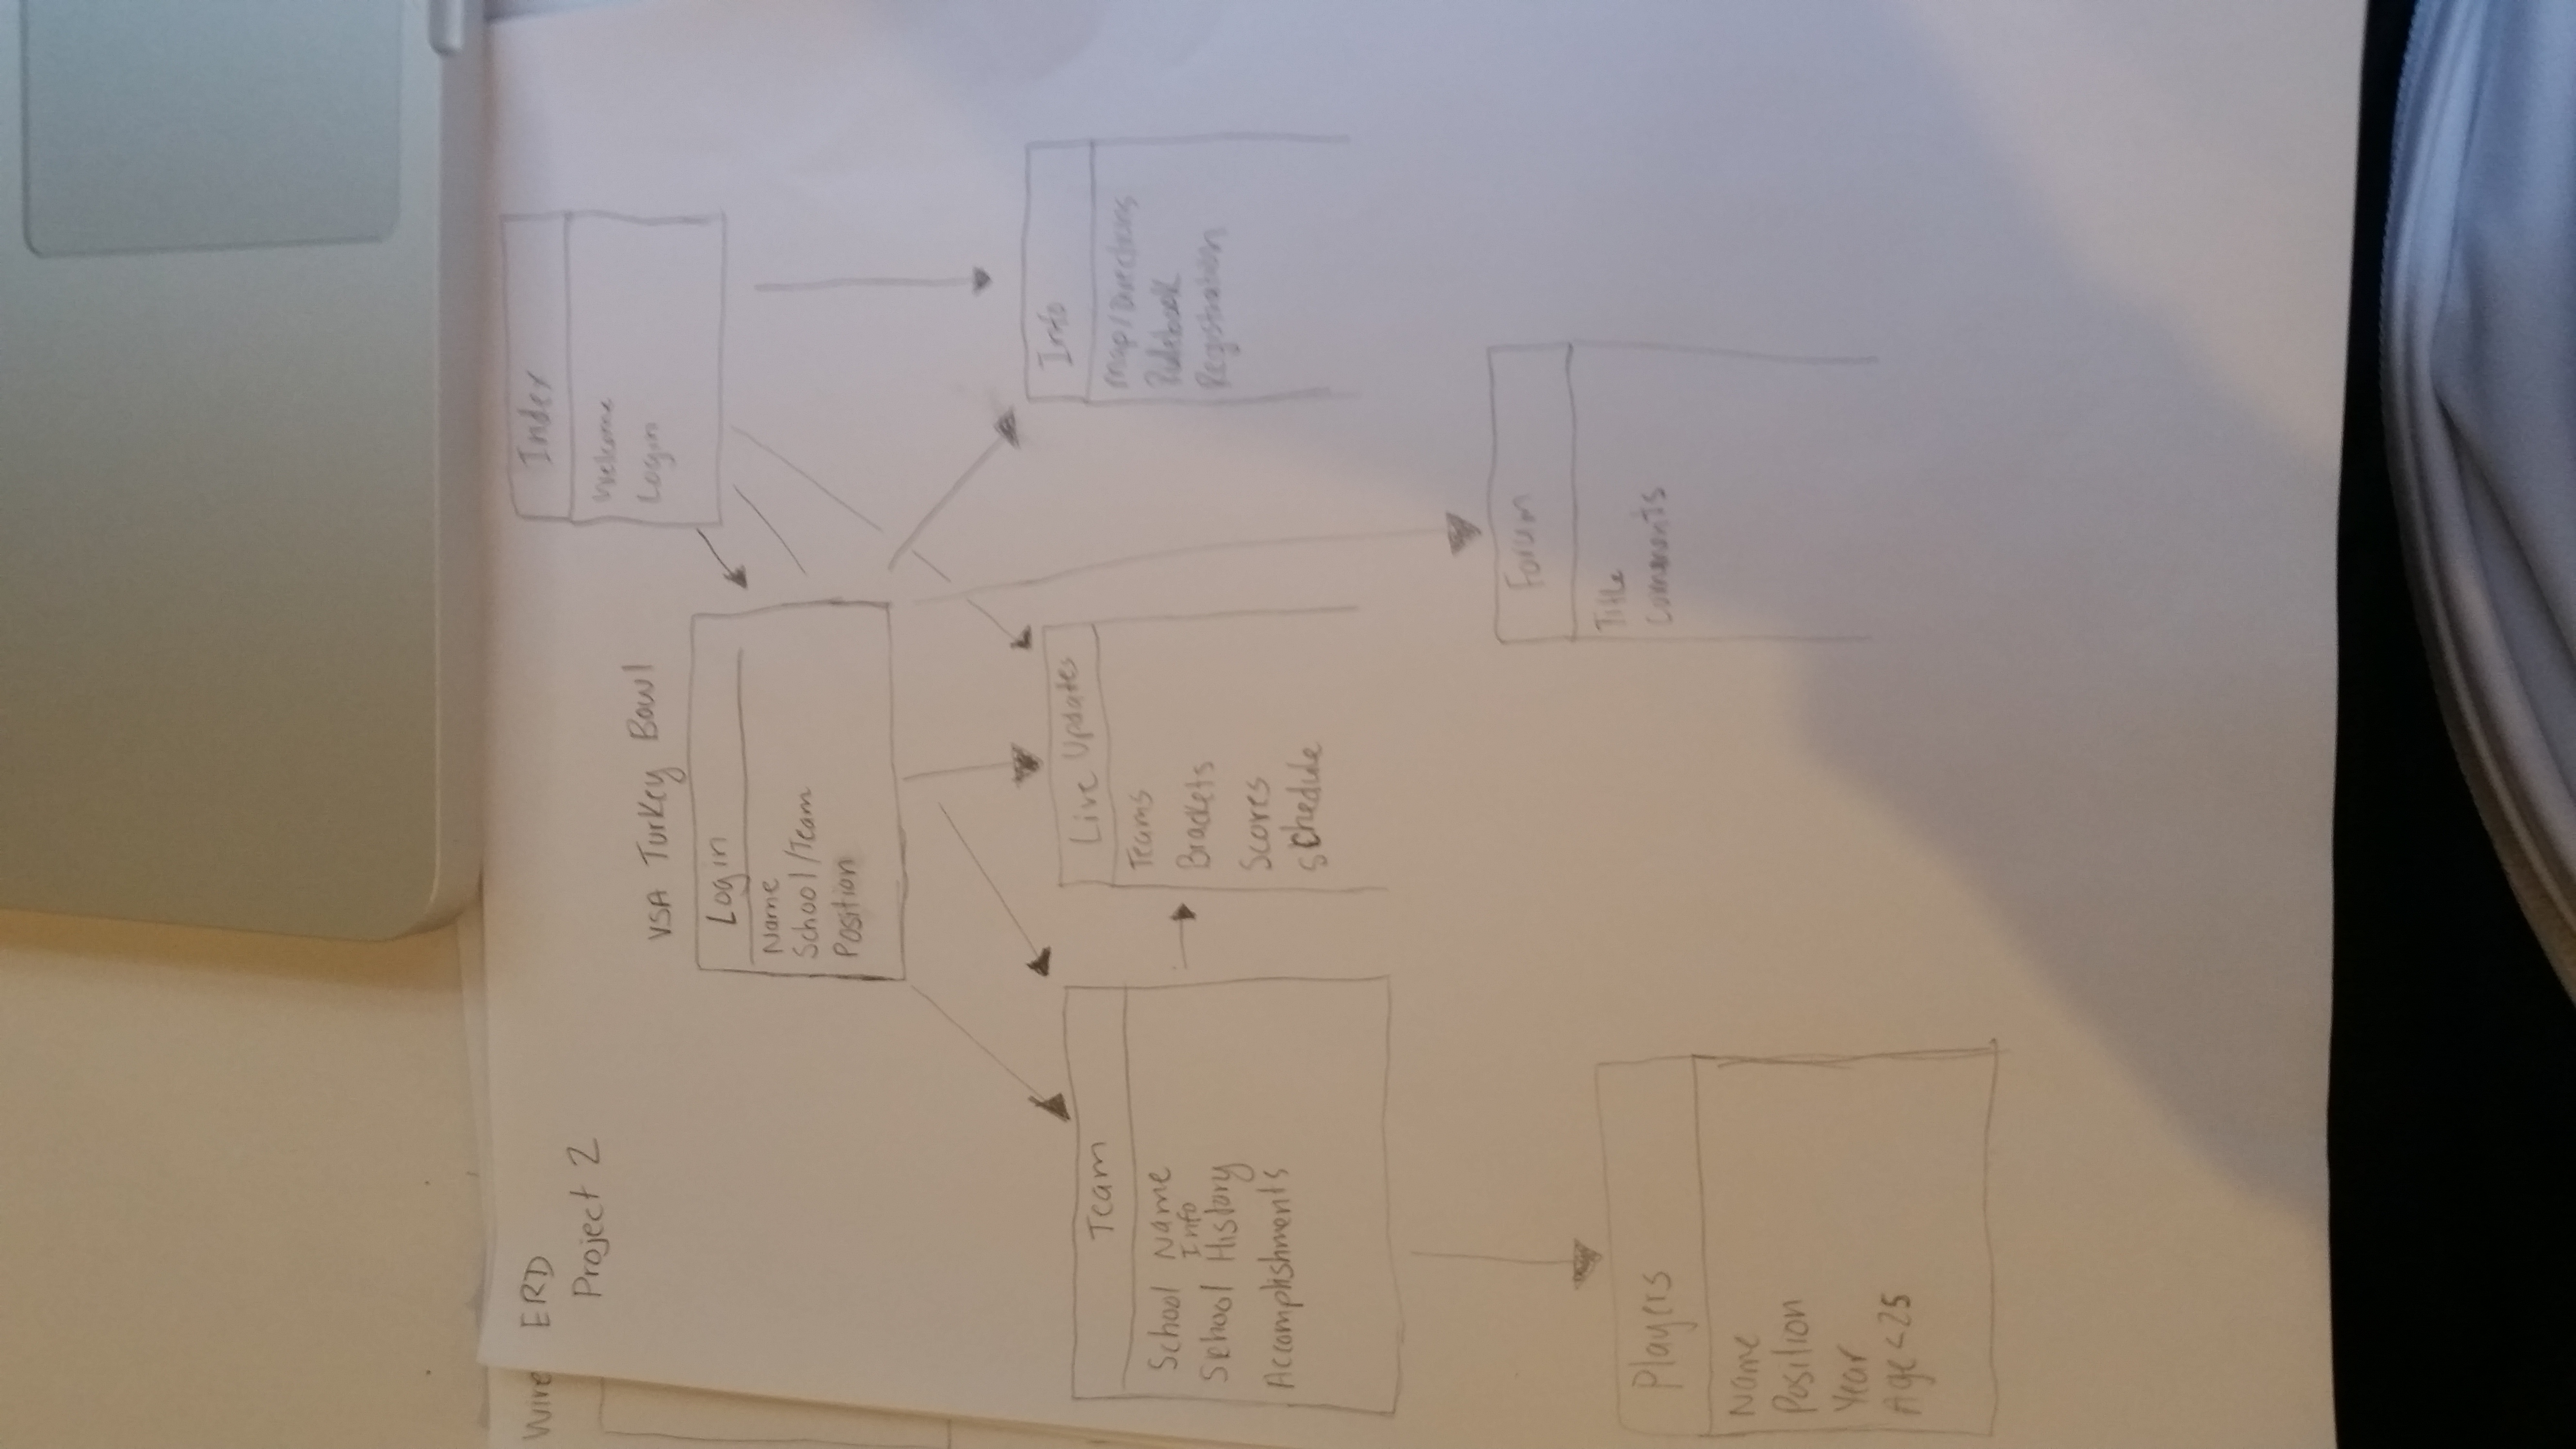 Wire
ERD
Project 2
VSA Turkey Bowl
Index
Welcome
Login
Login
Name
School/Team
Position
Team
School Name
Info
School History
Accomplishments
Live Updates
Teams
Brackets
Scores
Schedule
Info
Map/Directions
Rulebook
Registration
Players
Name
Position
Year
Age<25
Forum
Title
Comments